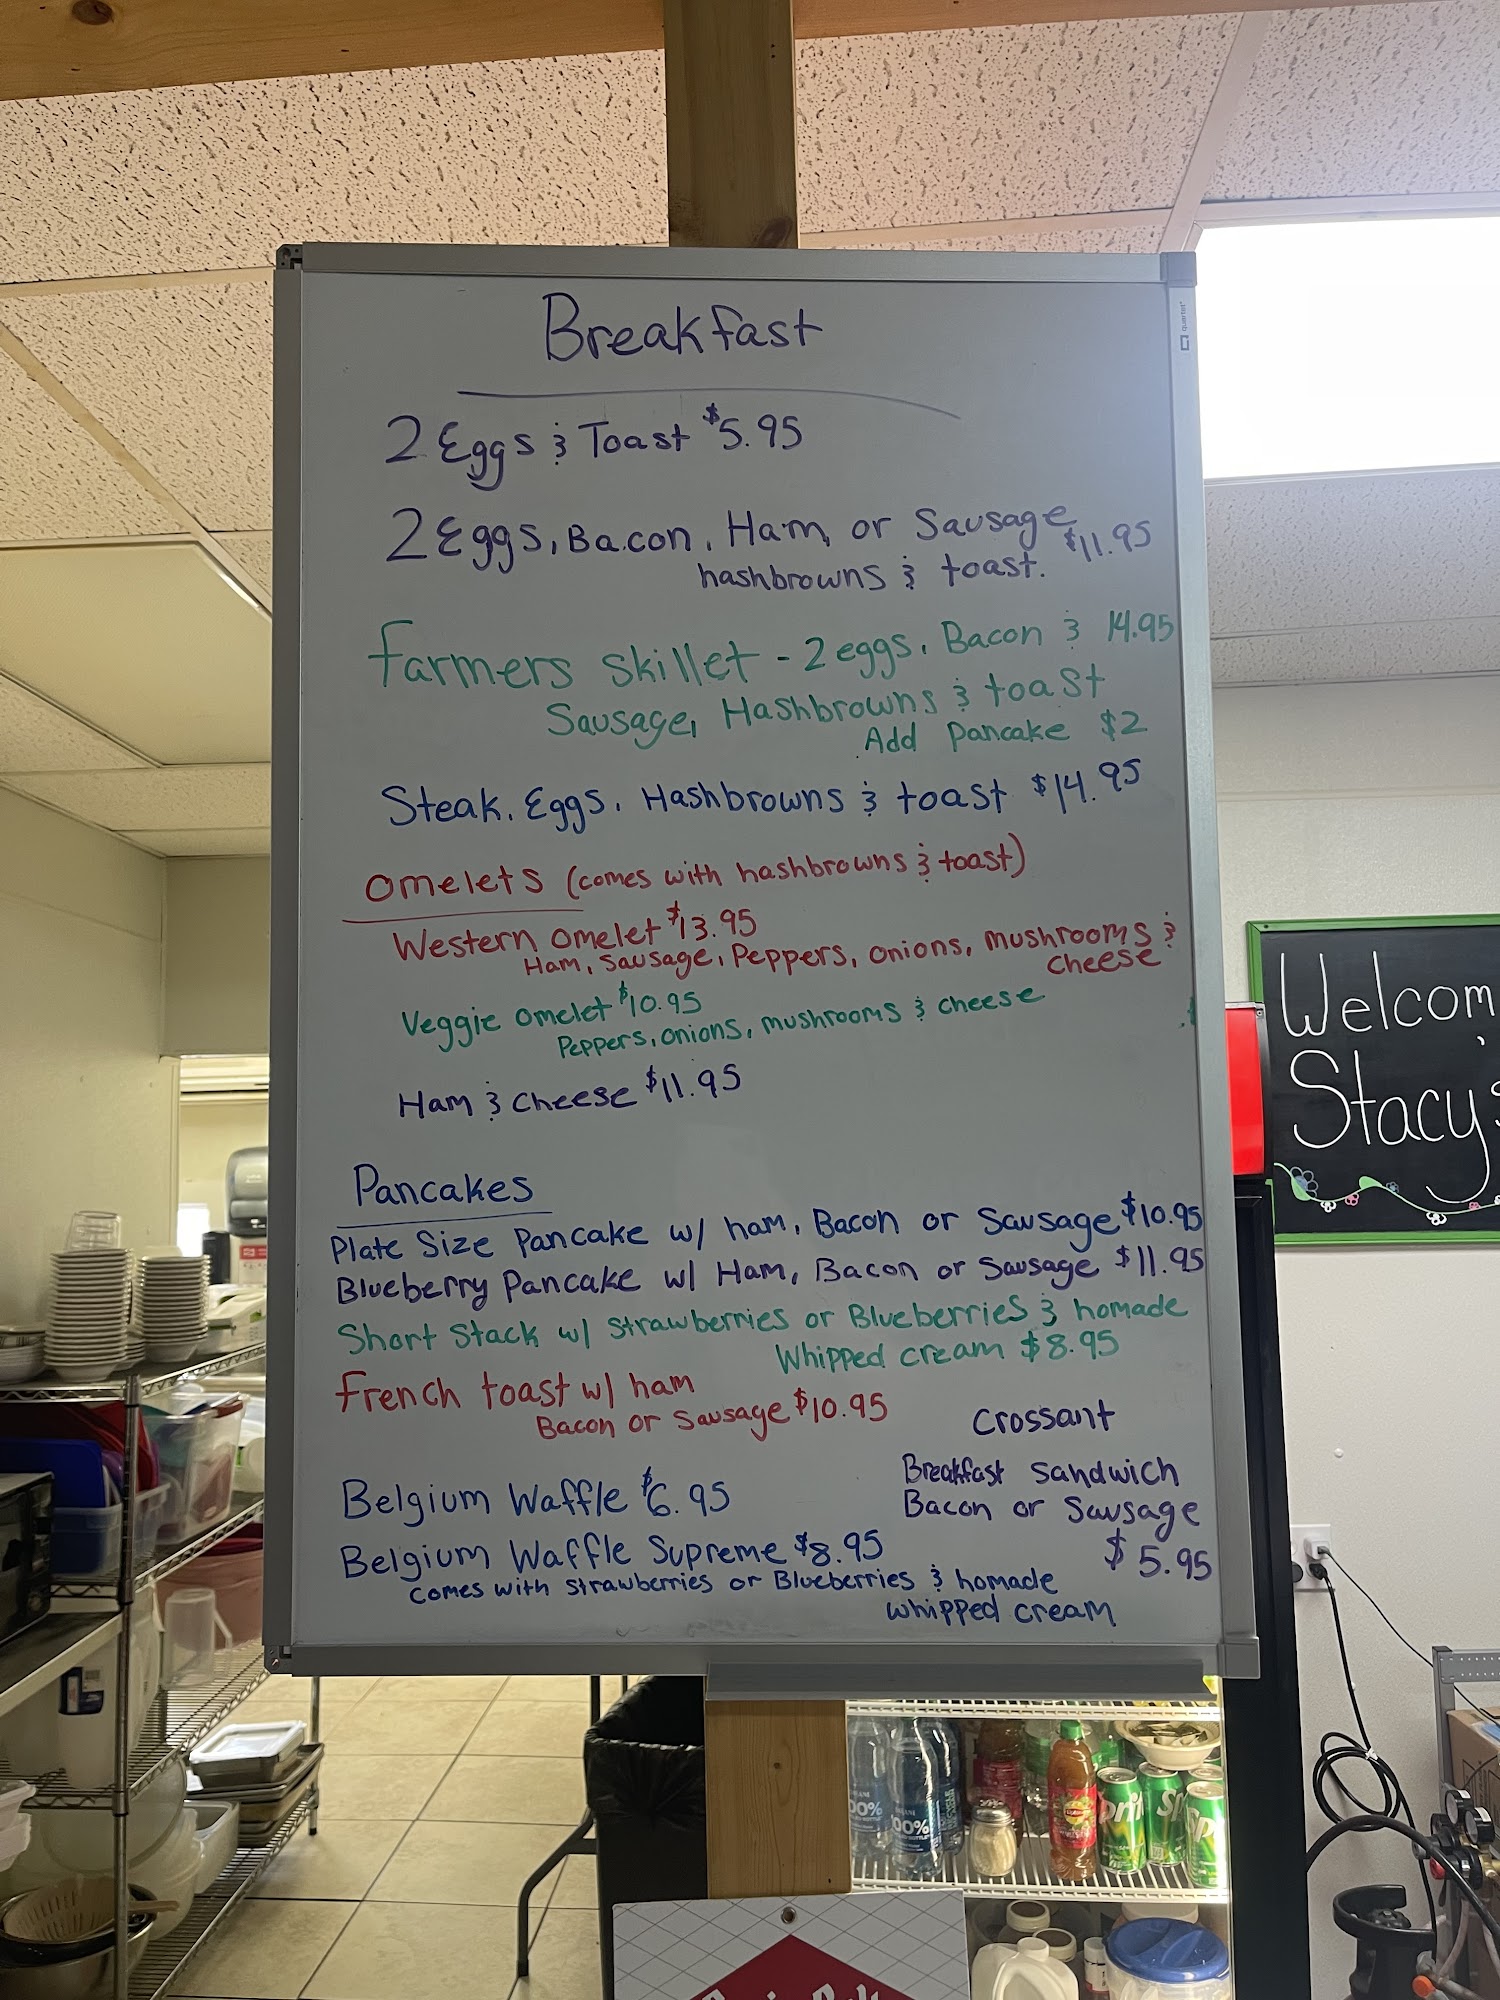 Breakfast
2 Eggs & Toast $5.95
2 Eggs, Bacon, Ham, or Sausage
hashbrowns & toast. $11.95
Farmers Skillet - 2 eggs, Bacon & 14.95
Sausage, Hashbrowns & toast
Add Pancake $2
Steak, Eggs, Hashbrowns & toast $14.95
Omelets (comes with hashbrowns & toast)
Western omelet $13.95
Ham, Sausage, Peppers, onions, mushrooms &
cheese
Veggie omelet $10.95
Peppers, onions, mushrooms & cheese
Ham & cheese $11.95
Pancakes
Plate Size Pancake w/ ham, Bacon or Sausage $10.95
Blueberry Pancake w/ Ham, Bacon or Sausage $11.95
Short Stack w/ Strawberries or Blueberries & homade
Whipped cream $8.95
French toast w/ ham
Bacon or Sausage $10.95
Crossant
Breakfast Sandwich
Bacon or Sausage
$5.95
Belgium Waffle $6.95
Belgium Waffle Supreme $8.95
comes with Strawberries or Blueberries & homade
whipped cream
quartet
Welcom
Stacy's
100%
Lipton